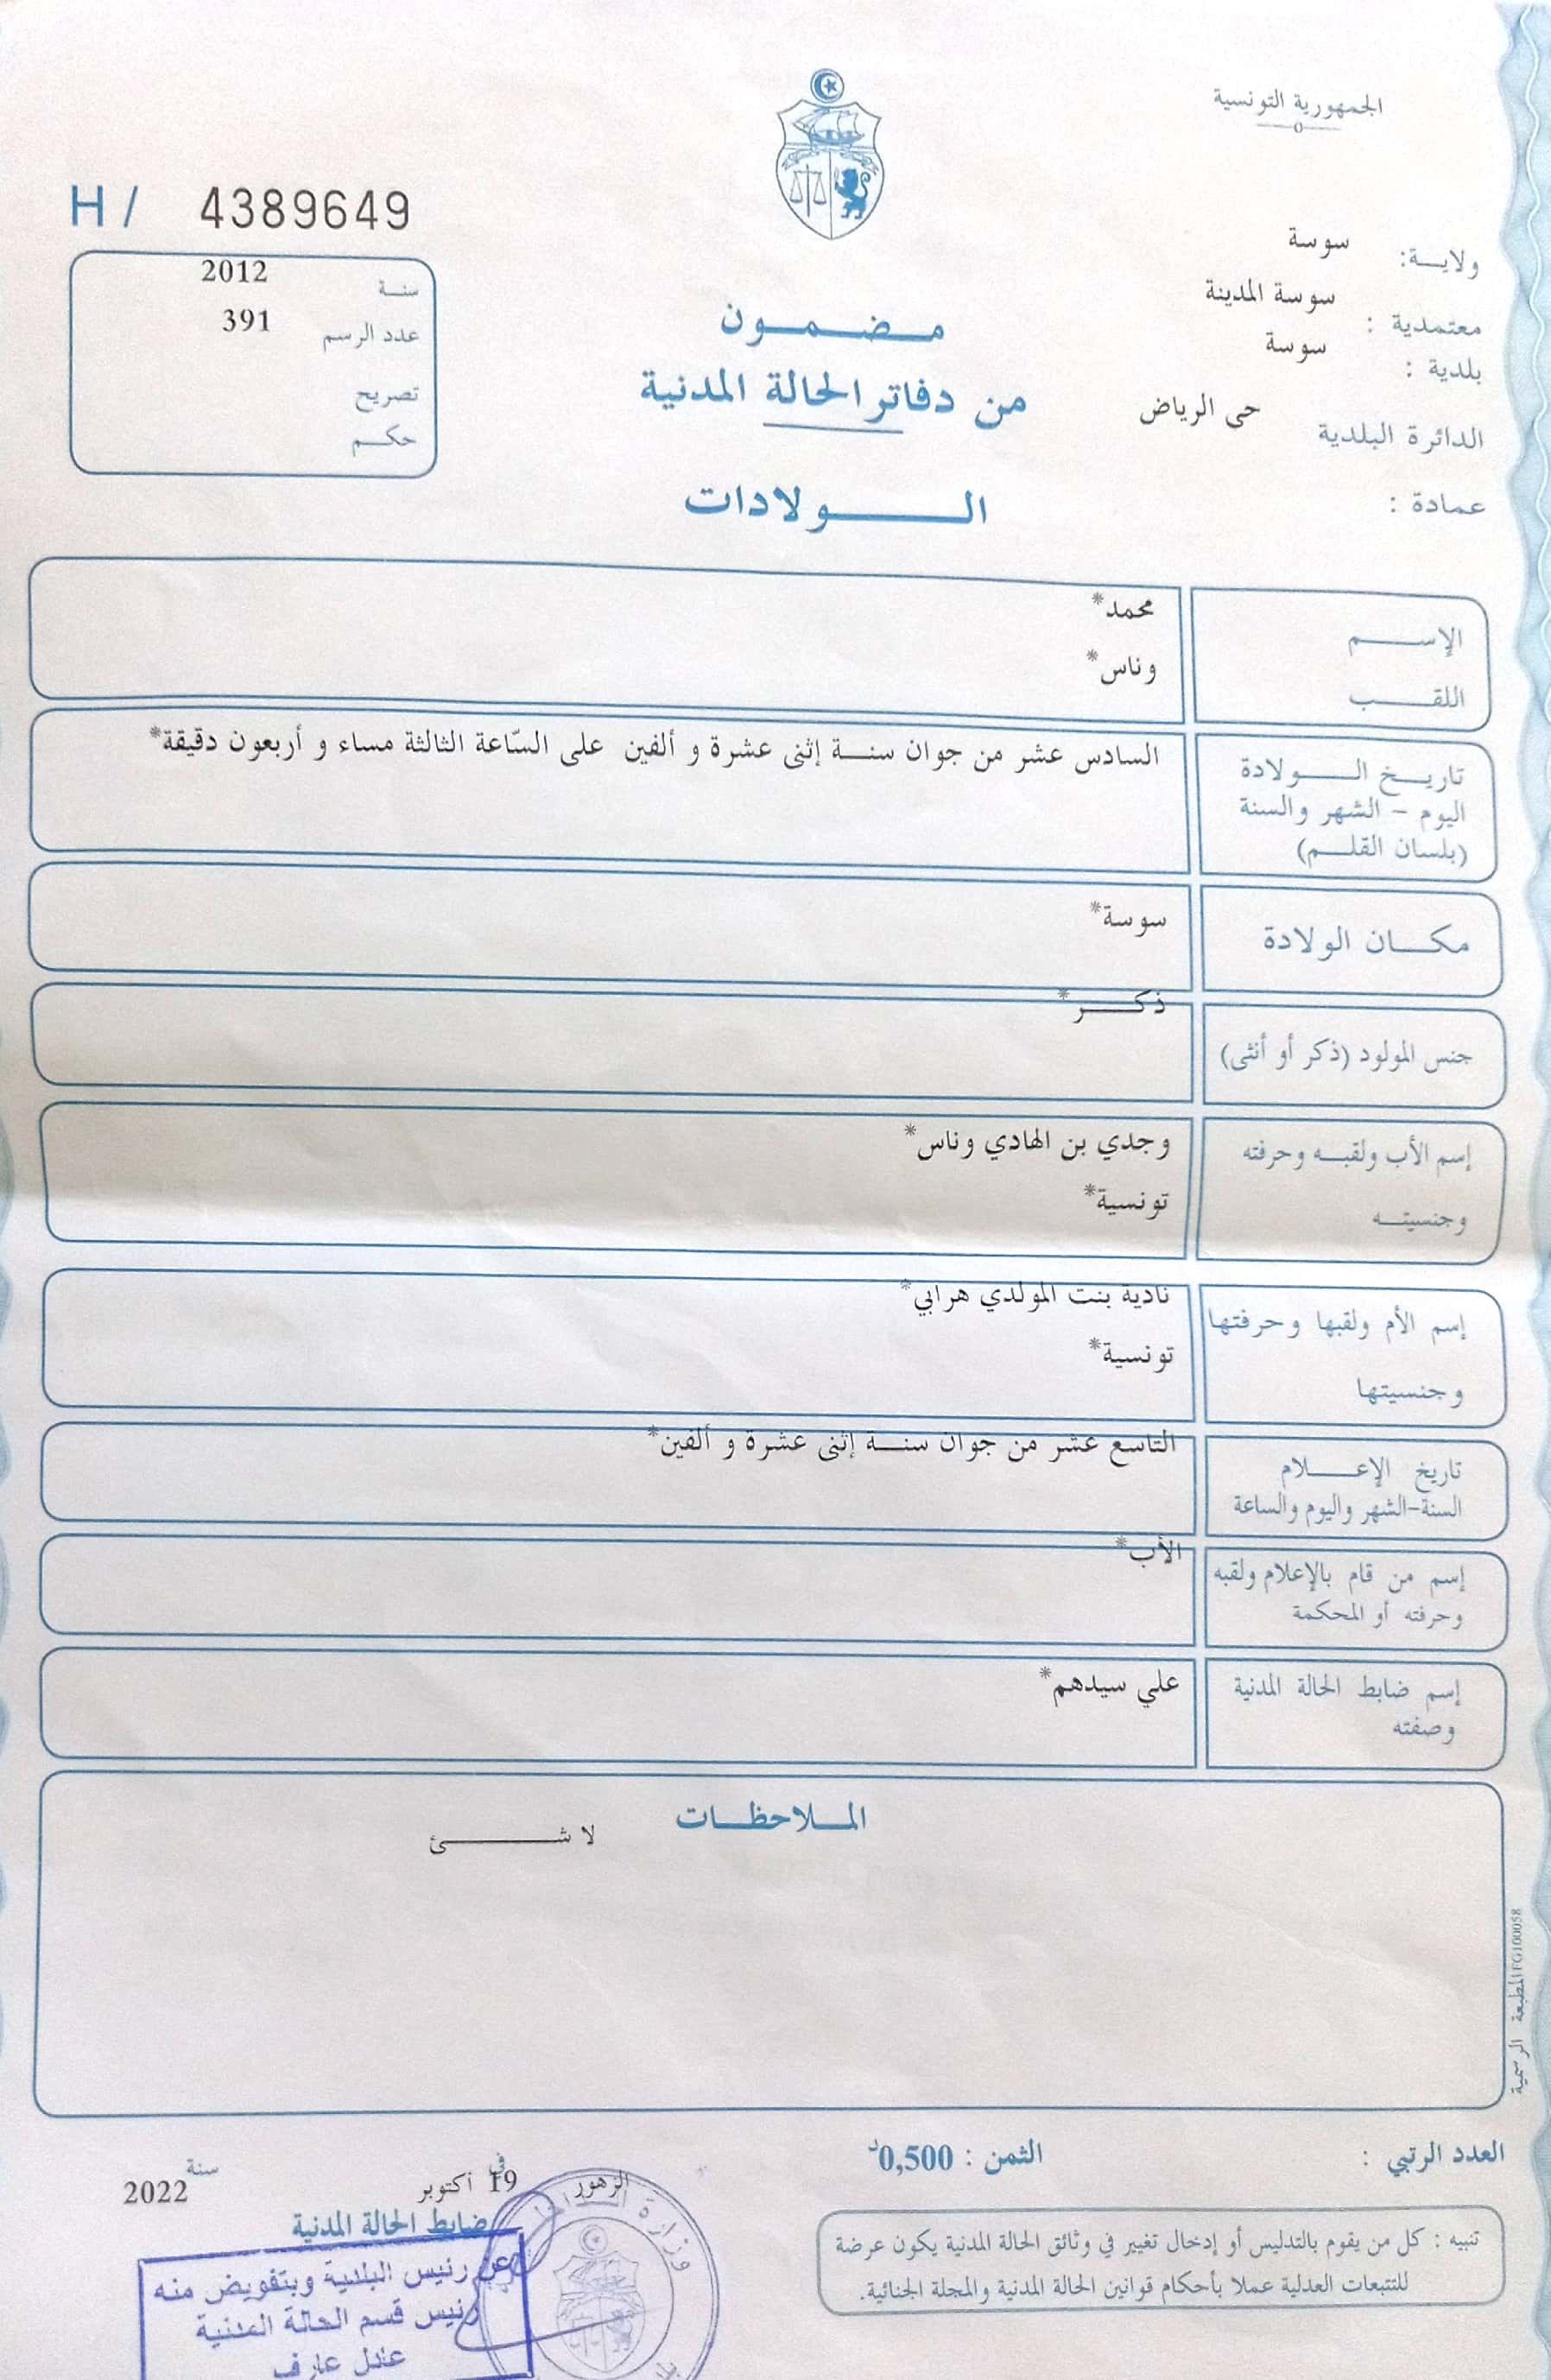 الجمهورية التونسية
ولايـــة: سوسة
معتمدية : سوسة المدينة
بلدية : سوسة
الدائرة البلدية حى الرياض
عمادة :
H / 4389649
سنـة 2012
عدد الرسم 391
تصريح
حكــم
مـــضـــمـــون
من دفاتر الحالة المدنية
الـــــولادات
الإســــم محمد*
اللقــــب وناس*
تاريـــخ الـــــولادة السادس عشر من جوان سنـــة إثنى عشرة و ألفين على السّاعة الثالثة مساء و أربعون دقيقة*
اليوم - الشهر والسنة
(بلسان القلـــم)
مكـــان الولادة سوسة*
جنس المولود (ذكر أو أنثى) ذكــــر*
إسم الأب ولقبــه وحرفته وجدي بن الهادي وناس*
وجنسيتــه تونسية*
إسم الأم ولقبها وحرفتها نادية بنت المولدي هرابي*
وجنسيتها تونسية*
تاريخ الإعــــلام التاسع عشر من جوان سنـــة إثنى عشرة و ألفين*
السنة-الشهر واليوم والساعة
إسم من قام بالإعلام ولقبه الأب*
وحرفته أو المحكمة
إسم ضابط الحالة المدنية علي سيدهم*
وصفته
المــلاحظـــات
لا شـــــــئ
المطبعة الرسمية IFG100058
العدد الرتبي :
الثمن : 0,500د
تنبيه : كل من يقوم بالتدليس أو إدخال تغيير في وثائق الحالة المدنية يكون عرضة
للتتبعات العدلية عملا بأحكام قوانين الحالة المدنية والمجلة الجنائية.
الزهور في 19 أكتوبر سنة 2022
ضابط الحالة المدنية
عن رئيس البلدية وبتفويض منه
رئيس قسم الحالة المدنية
عادل عارف
وزارة